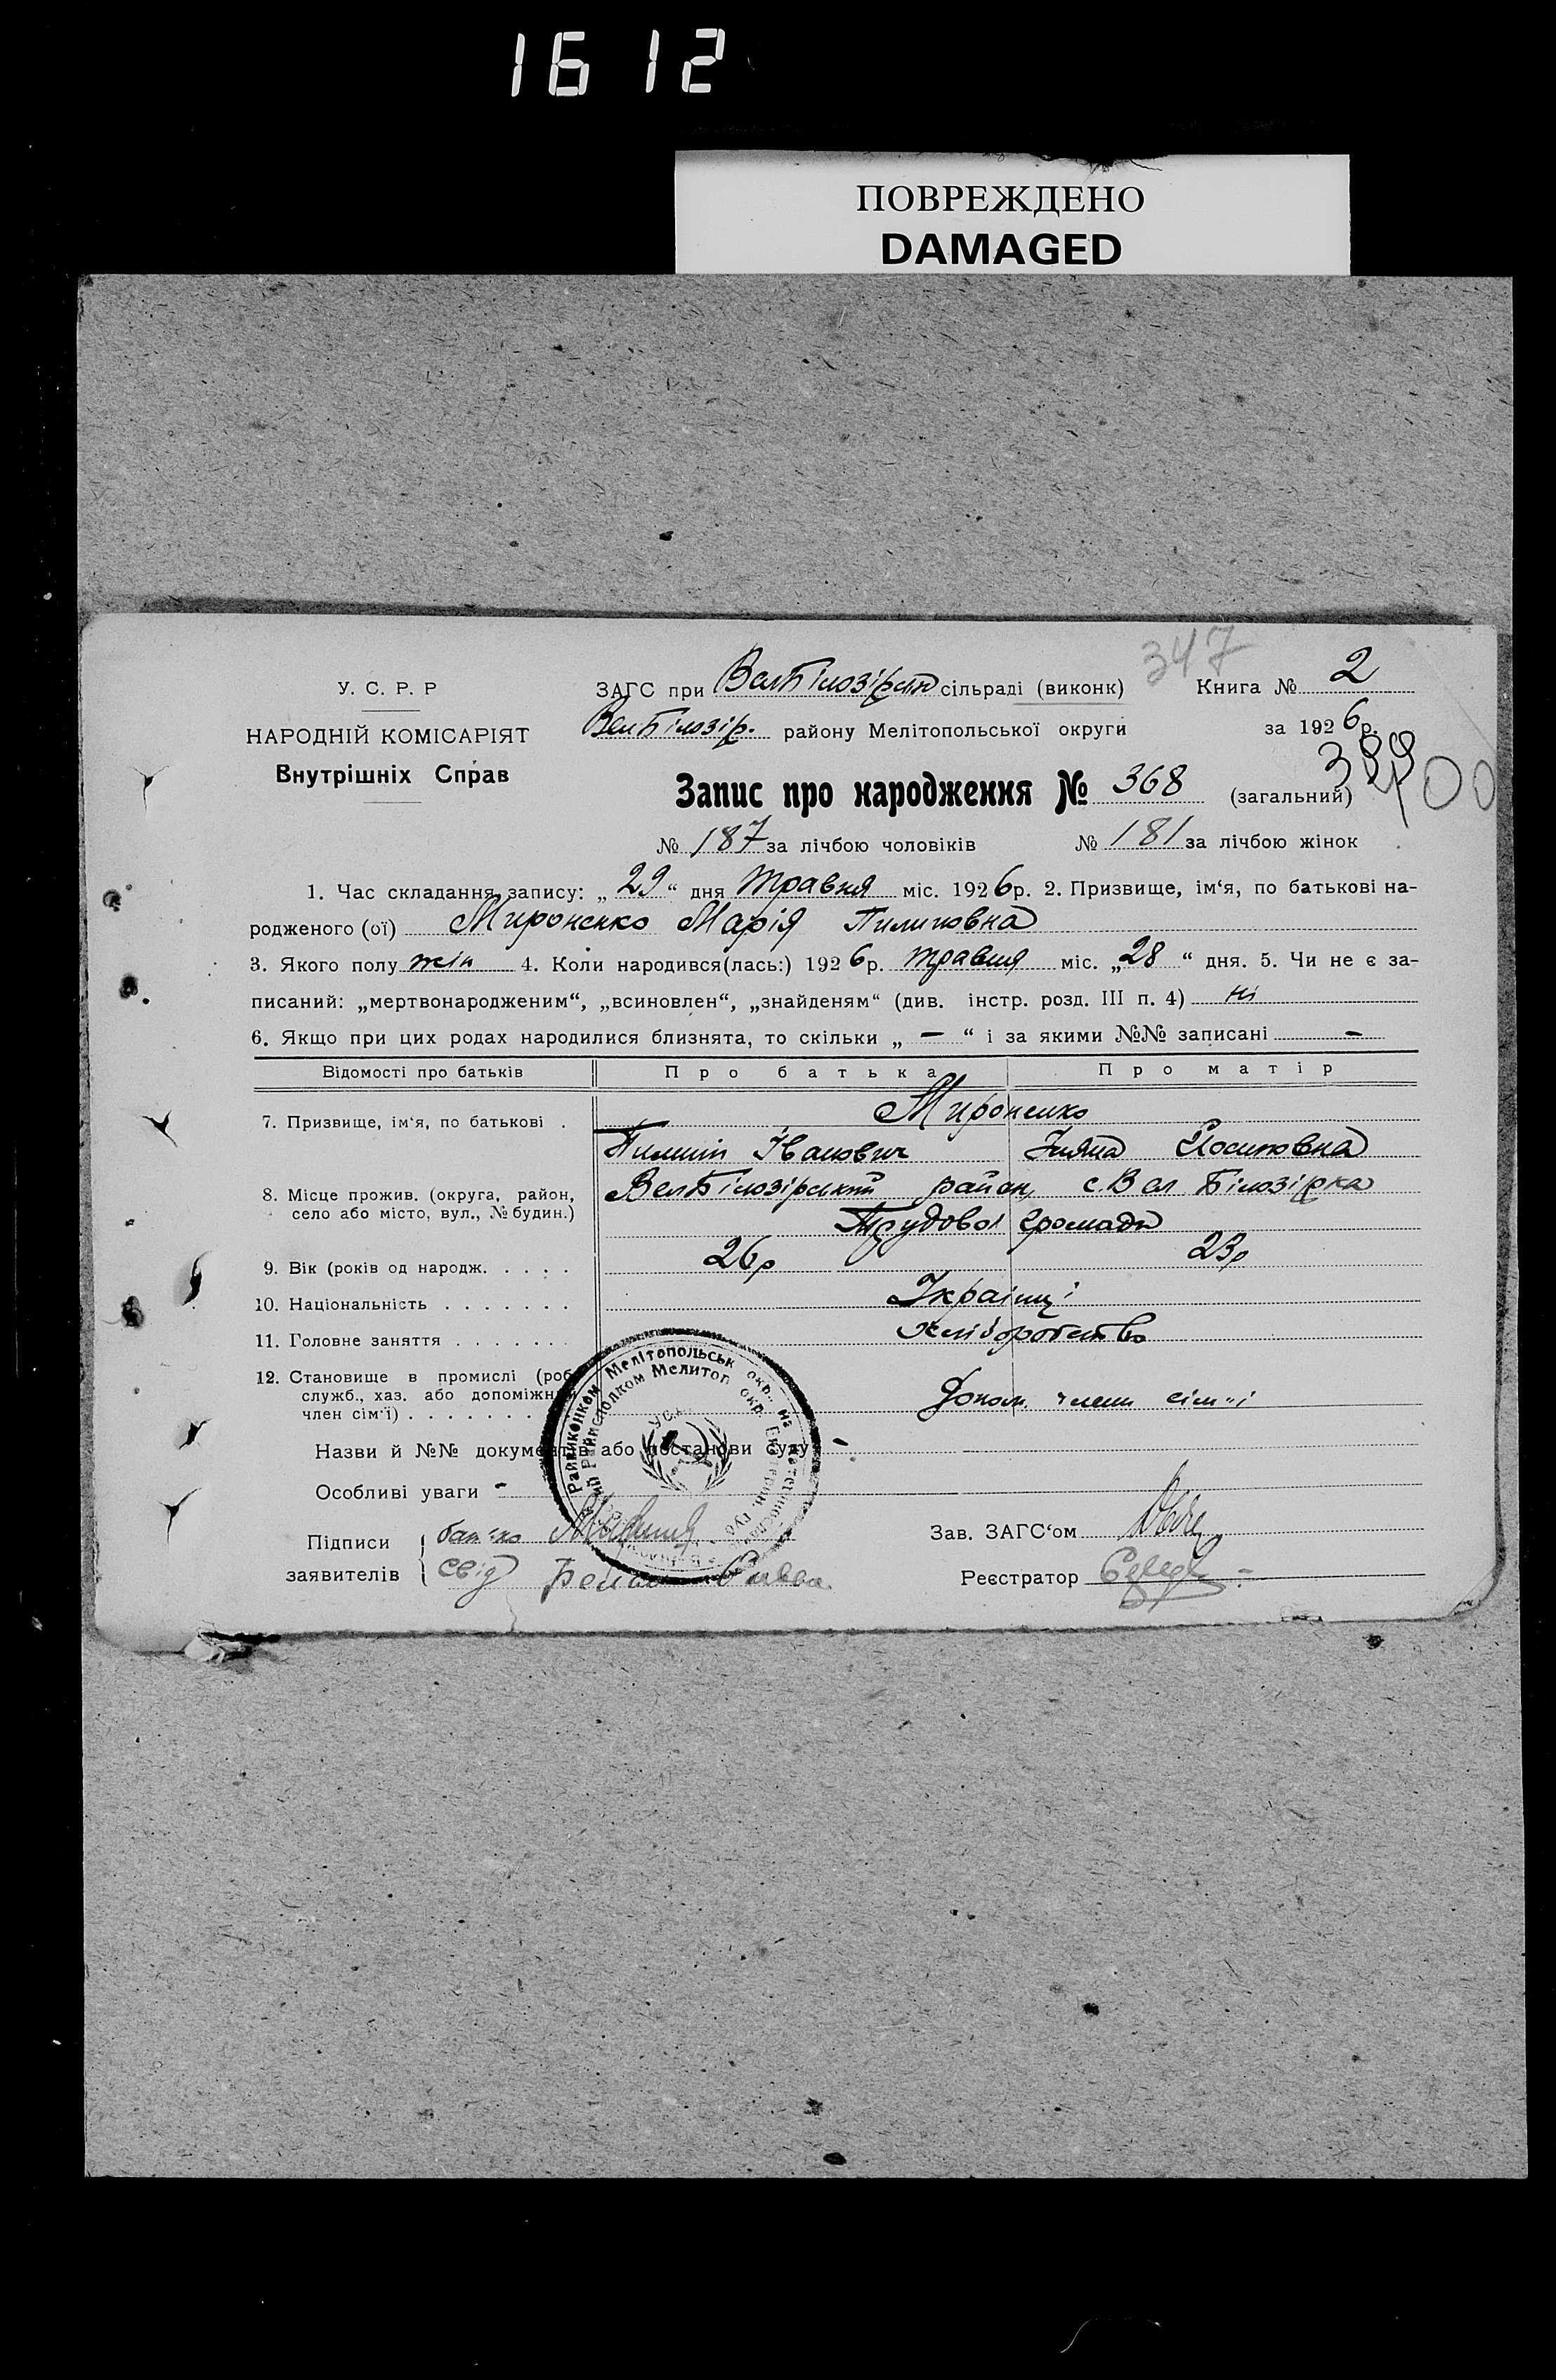 1612
ПОВРЕЖДЕНО
DAMAGED
347
У. С. Р. Р
ЗАГС при ВелБілозірськ сільраді (виконк) Книга № 2
НАРОДНІЙ КОМІСАРІЯТ
ВелБілозір. району Мелітопольської округи за 1926р.
Внутрішніх Справ
399 400
Запис про народження № 368 (загальний)
№ 187 за лічбою чоловіків № 181 за лічбою жінок
1. Час складання запису: „29“ дня травня міс. 1926р. 2. Призвище, ім‘я, по батькові на-
родженого (ої) Мироненко Марія Пилиповна
3. Якого полу жін 4. Коли народився(лась:) 1926р. травня міс. „28“ дня. 5. Чи не є за-
писаний: „мертвонародженим“, „всиновлен“, „знайденям“ (див. інстр. розд. III п. 4) ні
6. Якщо при цих родах народилися близнята, то скільки „ — “ і за якими №№ записані —
Відомості про батьків Про батька Про матір
7. Призвище, ім‘я, по батькові . Мироненко
Пилип Іванович Осиповна
8. Місце прожив. (округа, район, ВелБілозірський район, с. Вел Білозірка
село або місто, вул., № будин.) Трудової громади
9. Вік (років од народж. . . . . 26р 23р
10. Національність . . . . . . . Українці
11. Головне заняття . . . . . . . хліборобство
12. Становище в промислі (роб
служб., хаз. або допоміжн Допом. члени сім'ї
член сім‘ї) . . . . . . . .
Назви й №№ документів або постанови суду -
Особливі уваги -
Підписи батько Зав. ЗАГС‘ом
заявителів свід Реєстратор
Райвиконком Мелітопольськ окр. на Катеринославщ
Райисполком Мелитоп окр. Екатерин. губ